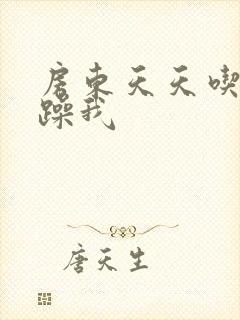 房东天天喫
躁我
唐天生